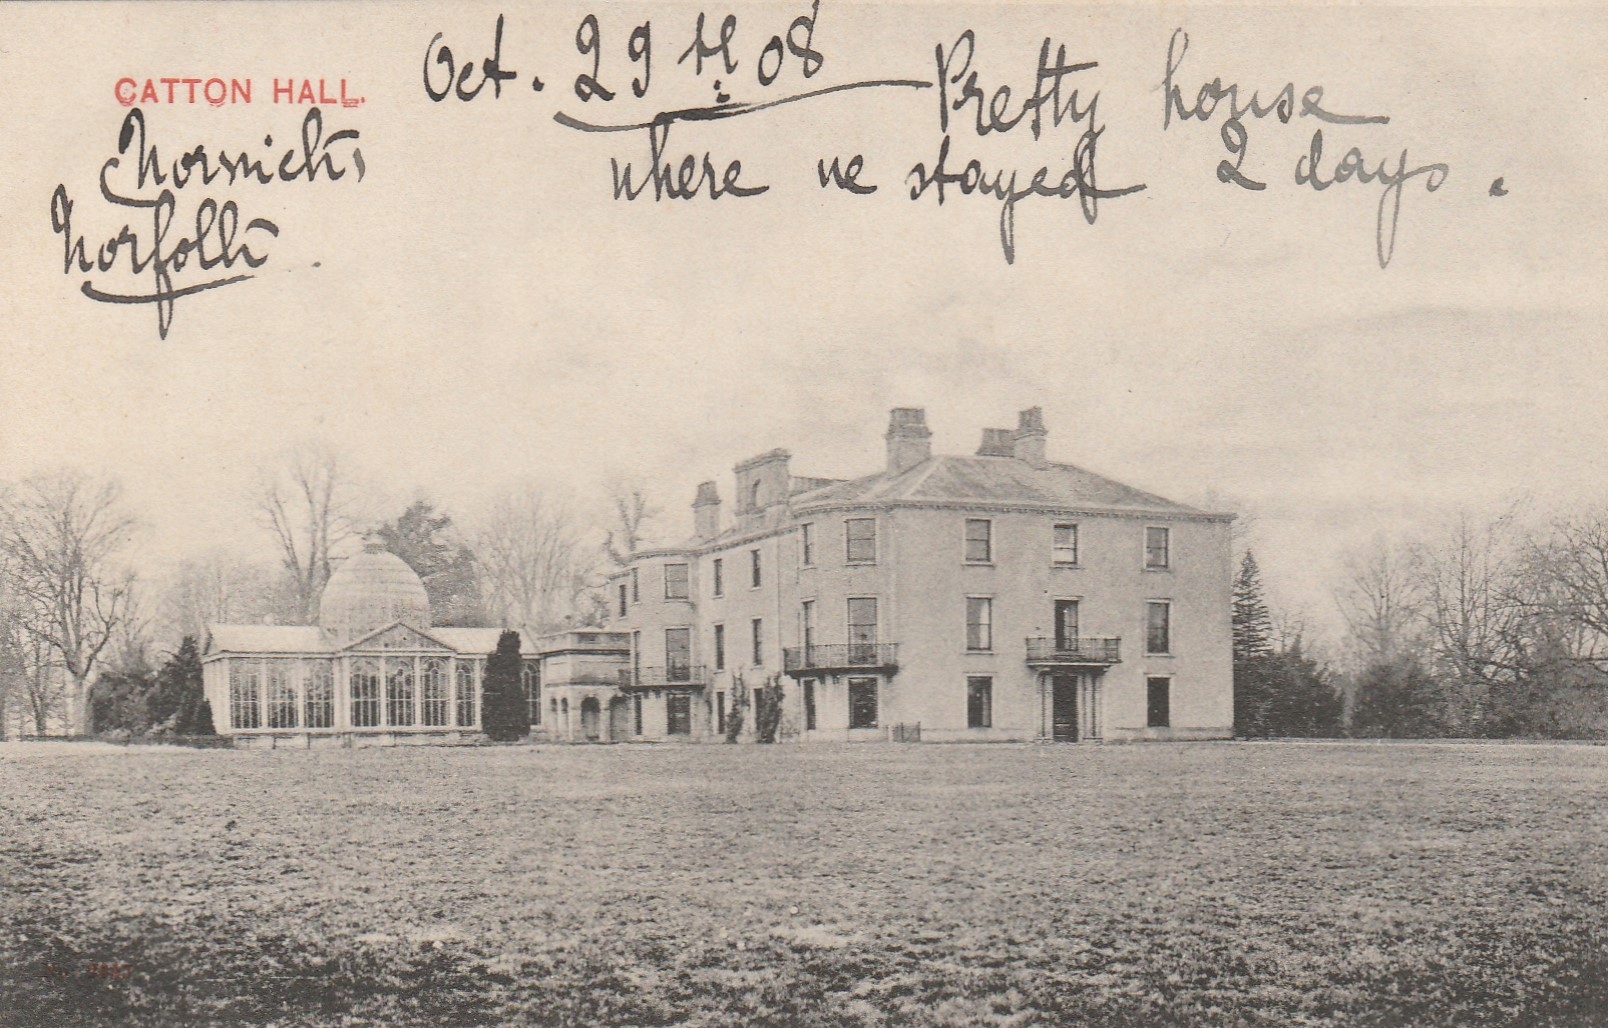 CATTON HALL.
Norwich,
Norfolk.
Oct. 29th 08 Pretty house
where we stayed 2 days.